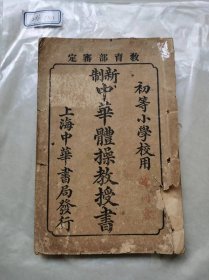 教育部審定
初等小學校用
新制
中華體操教授書
上海中華書局發行